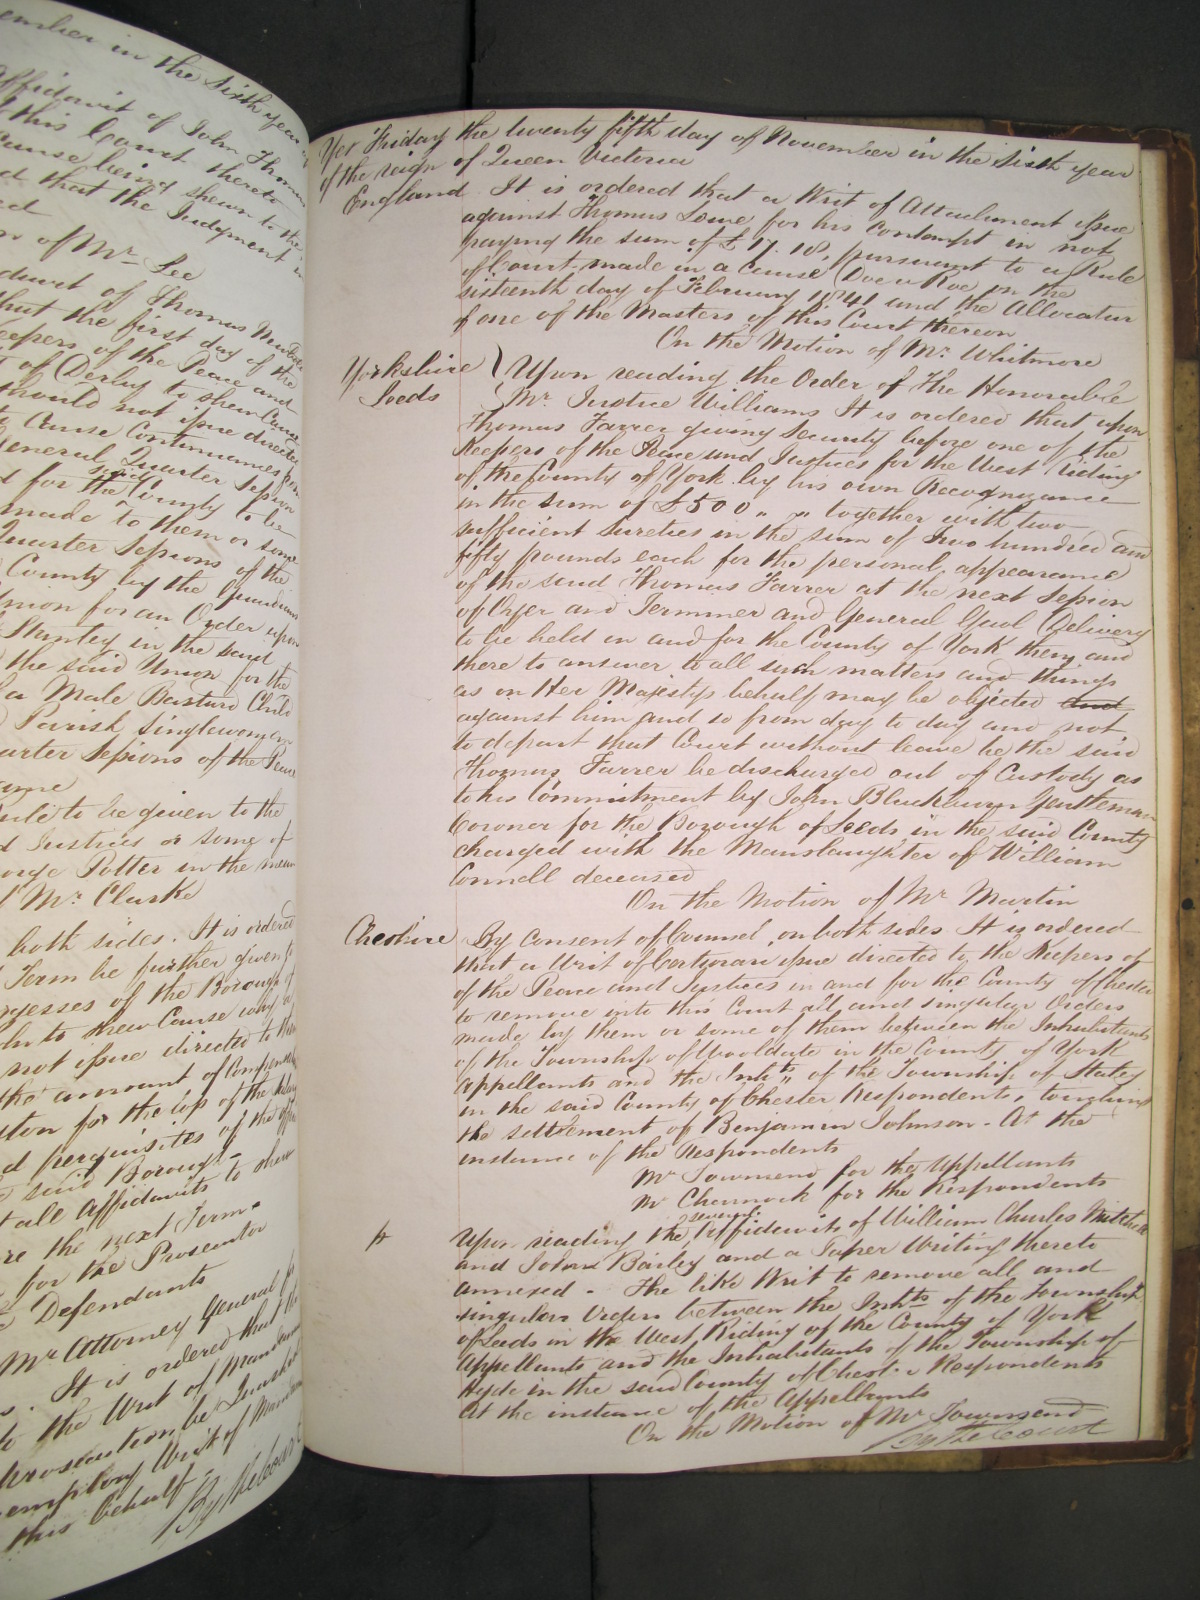 ember in the Sixth year
Affidavit of John Thomas
this Court thereto
cause being shewn to the
d that the Judgment
ed
n of Mr. Lee
davit of Thomas
that the first day of the
eepers of the Peace and
of Derby to shew Cause
should not issue directed
Cause Continuances
General Quarter Session
d for the said County to be
made to them or some
Quarter Sessions of the
County by the Guardians
Union for an Order upon
Stanley in the said
the said Union for the
a Male Bastard Child
Parish Singlewoman
uarter Sessions of the Peace
ame
ule to be given to the
d Justices or some of
orge Potter in the mean
Mr. Clarke
both sides. It is ordered
Term be further given to
rgesses of the Borough of
to shew Cause why a
not issue directed to them
the amount of Compensa
for the loss of the
d perquisites of the office
said Borough
all Affidavits to shew
re the next Term.
for the Prosecutor
Defendants
Mr. Attorney General for
s. It is ordered that the
to the Writ of Mandamus
Prosecution be Quashed
emptory Writ of Mandamus
this behalf
By the Court
Yet Friday the twenty fifth day of November in the Sixth year
of the reign of Queen Victoria
England It is ordered that a Writ of Attachment issue
against Thomas Lowe for his contempt in not
paying the sum of £17. 18, pursuant to a Rule
of Court made in a Cause Doe v Roe on the
sixteenth day of February 1841 and the Allocatur
of one of the Masters of this Court thereon
On the Motion of Mr. Whitmore
Yorkshire } Upon reading the Order of The Honorable
Leeds Mr. Justice Williams It is ordered that upon
Thomas Farrer giving Security before one of the
Keepers of the Peace and Justices for the West Riding
of the County of York by his own Recognizance
in the sum of £500 „ „ together with two
sufficient sureties in the sum of two hundred and
fifty pounds each for the personal appearance
of the said Thomas Farrer at the next Session
of Oyer and Terminer and General Gaol Delivery
to be held in and for the County of York then and
there to answer to all such matters and things
as on Her Majestys behalf may be objected and
against him and so from day to day and not
to depart that Court without leave he the said
Thomas Farrer be discharged out of Custody as
to his Commitment by John Blackburn Gentleman
Coroner for the Borough of Leeds in the said County
charged with the Manslaughter of William
Connell deceased
On the Motion of Mr. Martin
Cheshire By Consent of Counsel on both sides It is ordered
that a Writ of Certiorari issue directed to the Keepers of
of the Peace and Justices in and for the County of Chester
to remove into this Court all and singular Orders
made by them or some of them between the Inhabitants
of the Township of Wooldale in the County of York
Appellants and the Inhts. of the Township of Staley
in the said County of Chester Respondents, touching
the settlement of Benjamin Johnson. At the
instance of the Respondents
Mr. Townsend for the Appellants
Mr. Charnock for the Respondents
Upon reading the several Affidavits of William Charles
and John Bailey and a Paper Writing thereto
annexed. The like Writ to remove all and
singular Orders between the Inhts. of the Township
of Leeds in the West Riding of the County of York
Appellants and the Inhabitants of the Township of
Hyde in the said County of Chester Respondents
At the instance of the Appellants
On the Motion of Mr. Townsend
By the Court